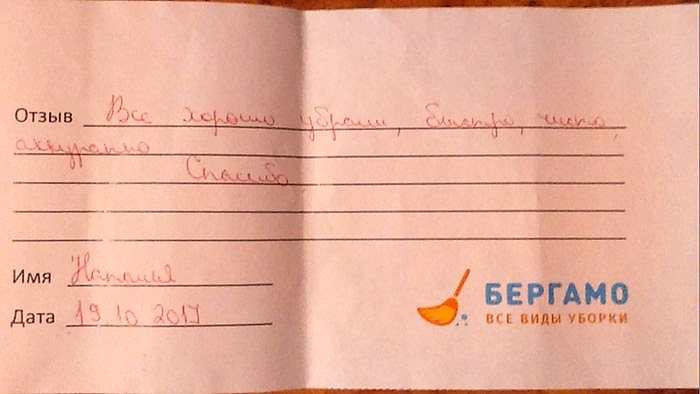 Отзыв Все хорошо убрали, быстро, чисто,
аккуратно
Спасибо
Имя Наталья
Дата 19 10 2017
БЕРГАМО
ВСЕ ВИДЫ УБОРКИ